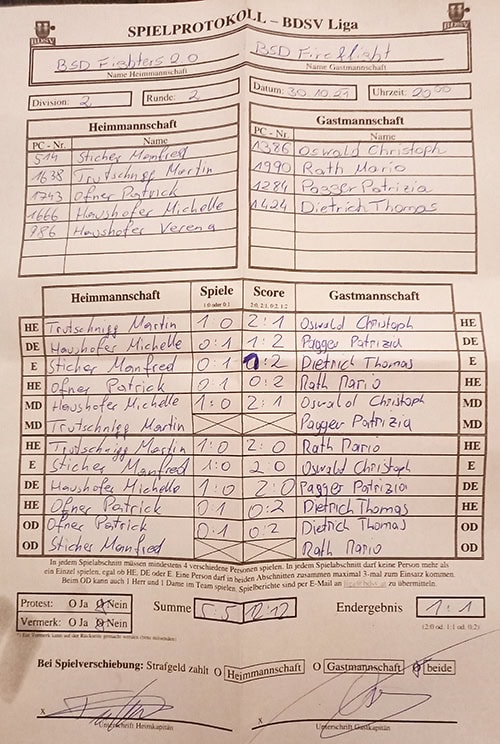 SPIELPROTOKOLL – BDSV Liga
BDSV BDSV
BSD Fighters 2.0 BSD Fireflight
Name Heimmannschaft Name Gastmannschaft
Division: 2 Runde: 2 Datum: 30.10.21 Uhrzeit: 20 00
Heimmannschaft Gastmannschaft
PC - Nr. Name PC - Nr. Name
514 Sticher Manfred 1386 Oswald Christoph
1638 Trutschnigg Martin 1990 Rath Mario
1743 Ofner Patrick 1284 Pagger Patrizia
1666 Haushofer Michelle 1424 Dietrich Thomas
786 Haushofer Verena
Heimmannschaft Spiele Score Gastmannschaft
1:0 oder 0:1 2:0, 2:1, 0:2, 1:2
HE Trutschnigg Martin 1:0 2:1 Oswald Christoph HE
DE Haushofer Michelle 0:1 1:2 Pagger Patrizia DE
E Sticher Manfred 0:1 :2 Dietrich Thomas E
HE Ofner Patrick 0:1 0:2 Rath Mario HE
MD Haushofer Michelle 1:0 2:1 Oswald Christoph MD
MD Trutschnigg Martin Pagger Patrizia MD
HE Trutschnigg Martin 1:0 2:0 Rath Mario HE
E Sticher Manfred 1:0 2:0 Oswald Christoph E
DE Haushofer Michelle 1:0 2:0 Pagger Patrizia DE
HE Ofner Patrick 0:1 0:2 Dietrich Thomas HE
OD Ofner Patrick 0:1 0:2 Dietrich Thomas OD
OD Sticher Manfred Rath Mario OD
In jedem Spielabschnitt müssen mindestens 4 verschiedene Personen spielen. In jedem Spielabschnitt darf keine Person mehr als
ein Einzel spielen, egal ob HE, DE oder E. Eine Person darf in beiden Abschnitten zusammen maximal 3-mal zum Einsatz kommen.
Beim OD kann auch 1 Herr und 1 Dame im Team spielen. Spielberichte sind per E-Mail an liga@bdsv.at zu übermitteln.
Protest: O Ja O Nein Summe 5:5 12:12 Endergebnis 1:1
Vermerk: O Ja O Nein (2:0 od. 1:1 od. 0:2)
*) Ein Vermerk kann auf der Rückseite gemacht werden
Bei Spielverschiebung: Strafgeld zahlt O Heimmannschaft O Gastmannschaft O beide
X X
Unterschrift Heimkapitän Unterschrift Gastkapitän